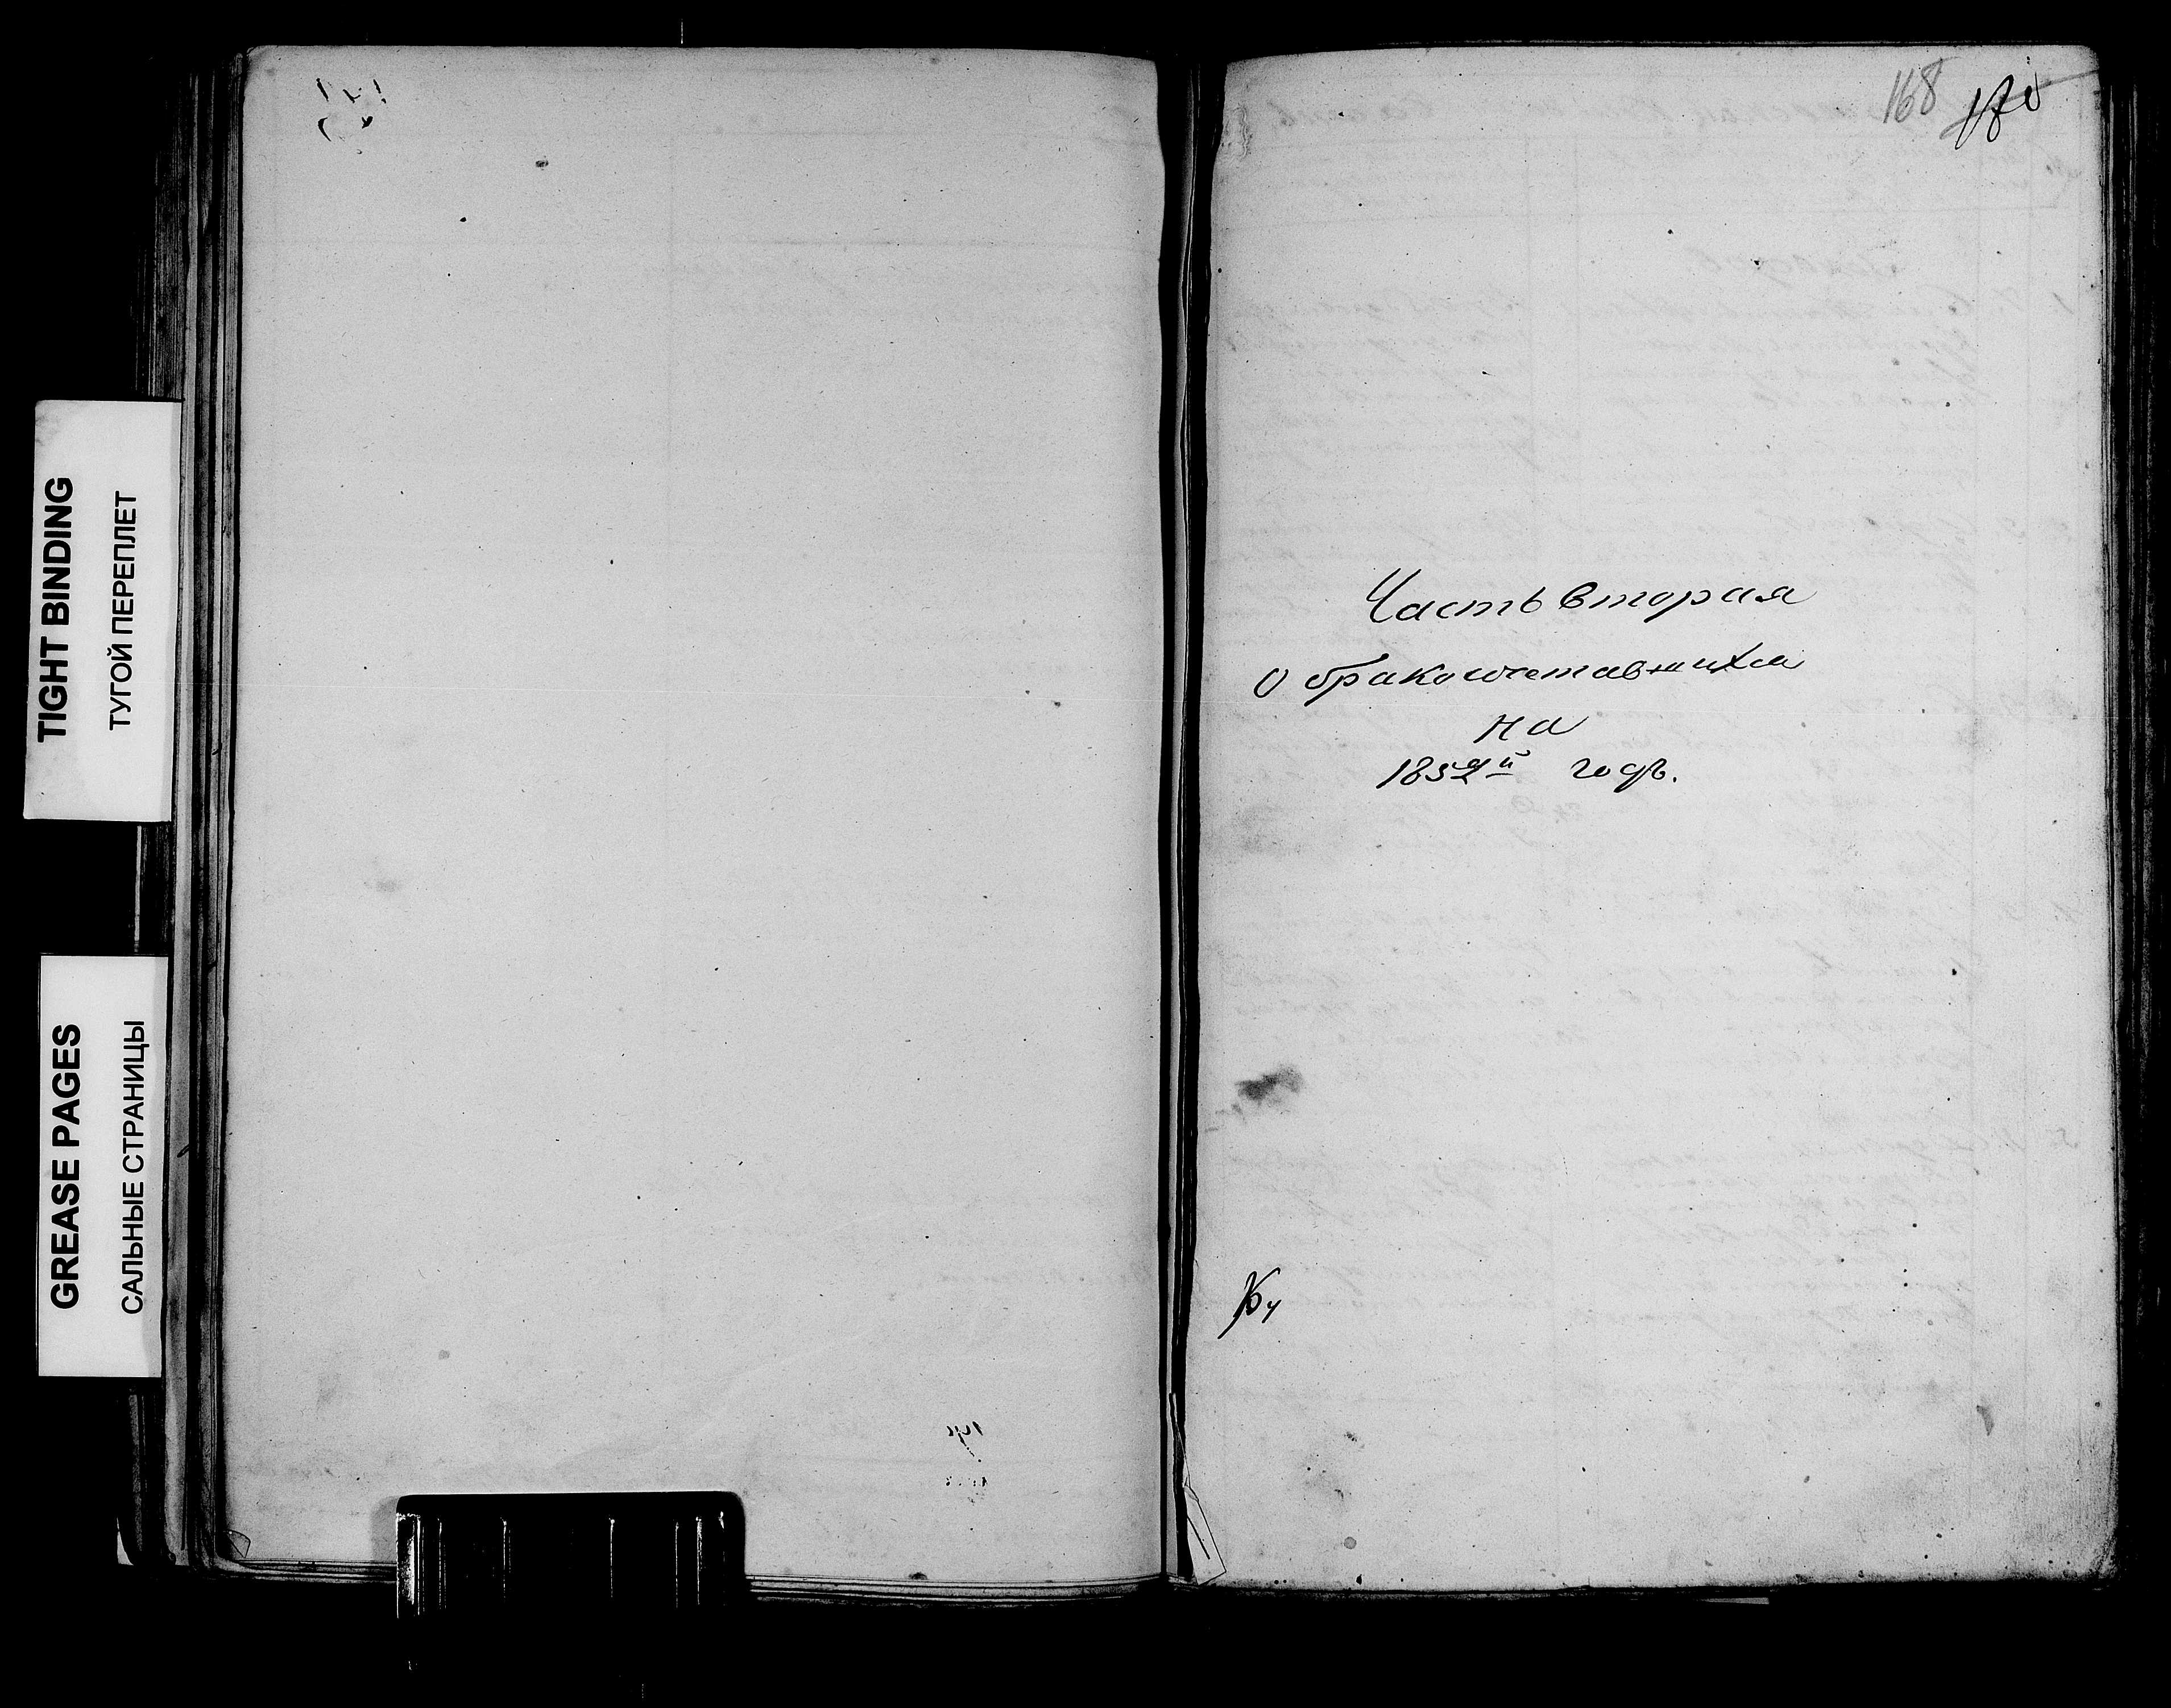 TIGHT BINDING
ТУГОЙ ПЕРЕПЛЕТ
GREASE PAGES
САЛЬНЫЕ СТРАНИЦЫ
168
Часть вторая
О бракосочетавшихся
на
1852й годъ.